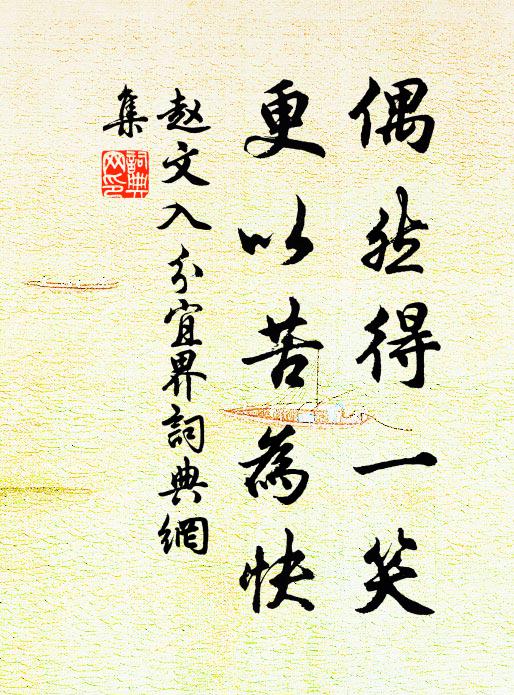 偶然得一笑
更以苦為快
赵文入分宜界詞典網
集
詞典
网印